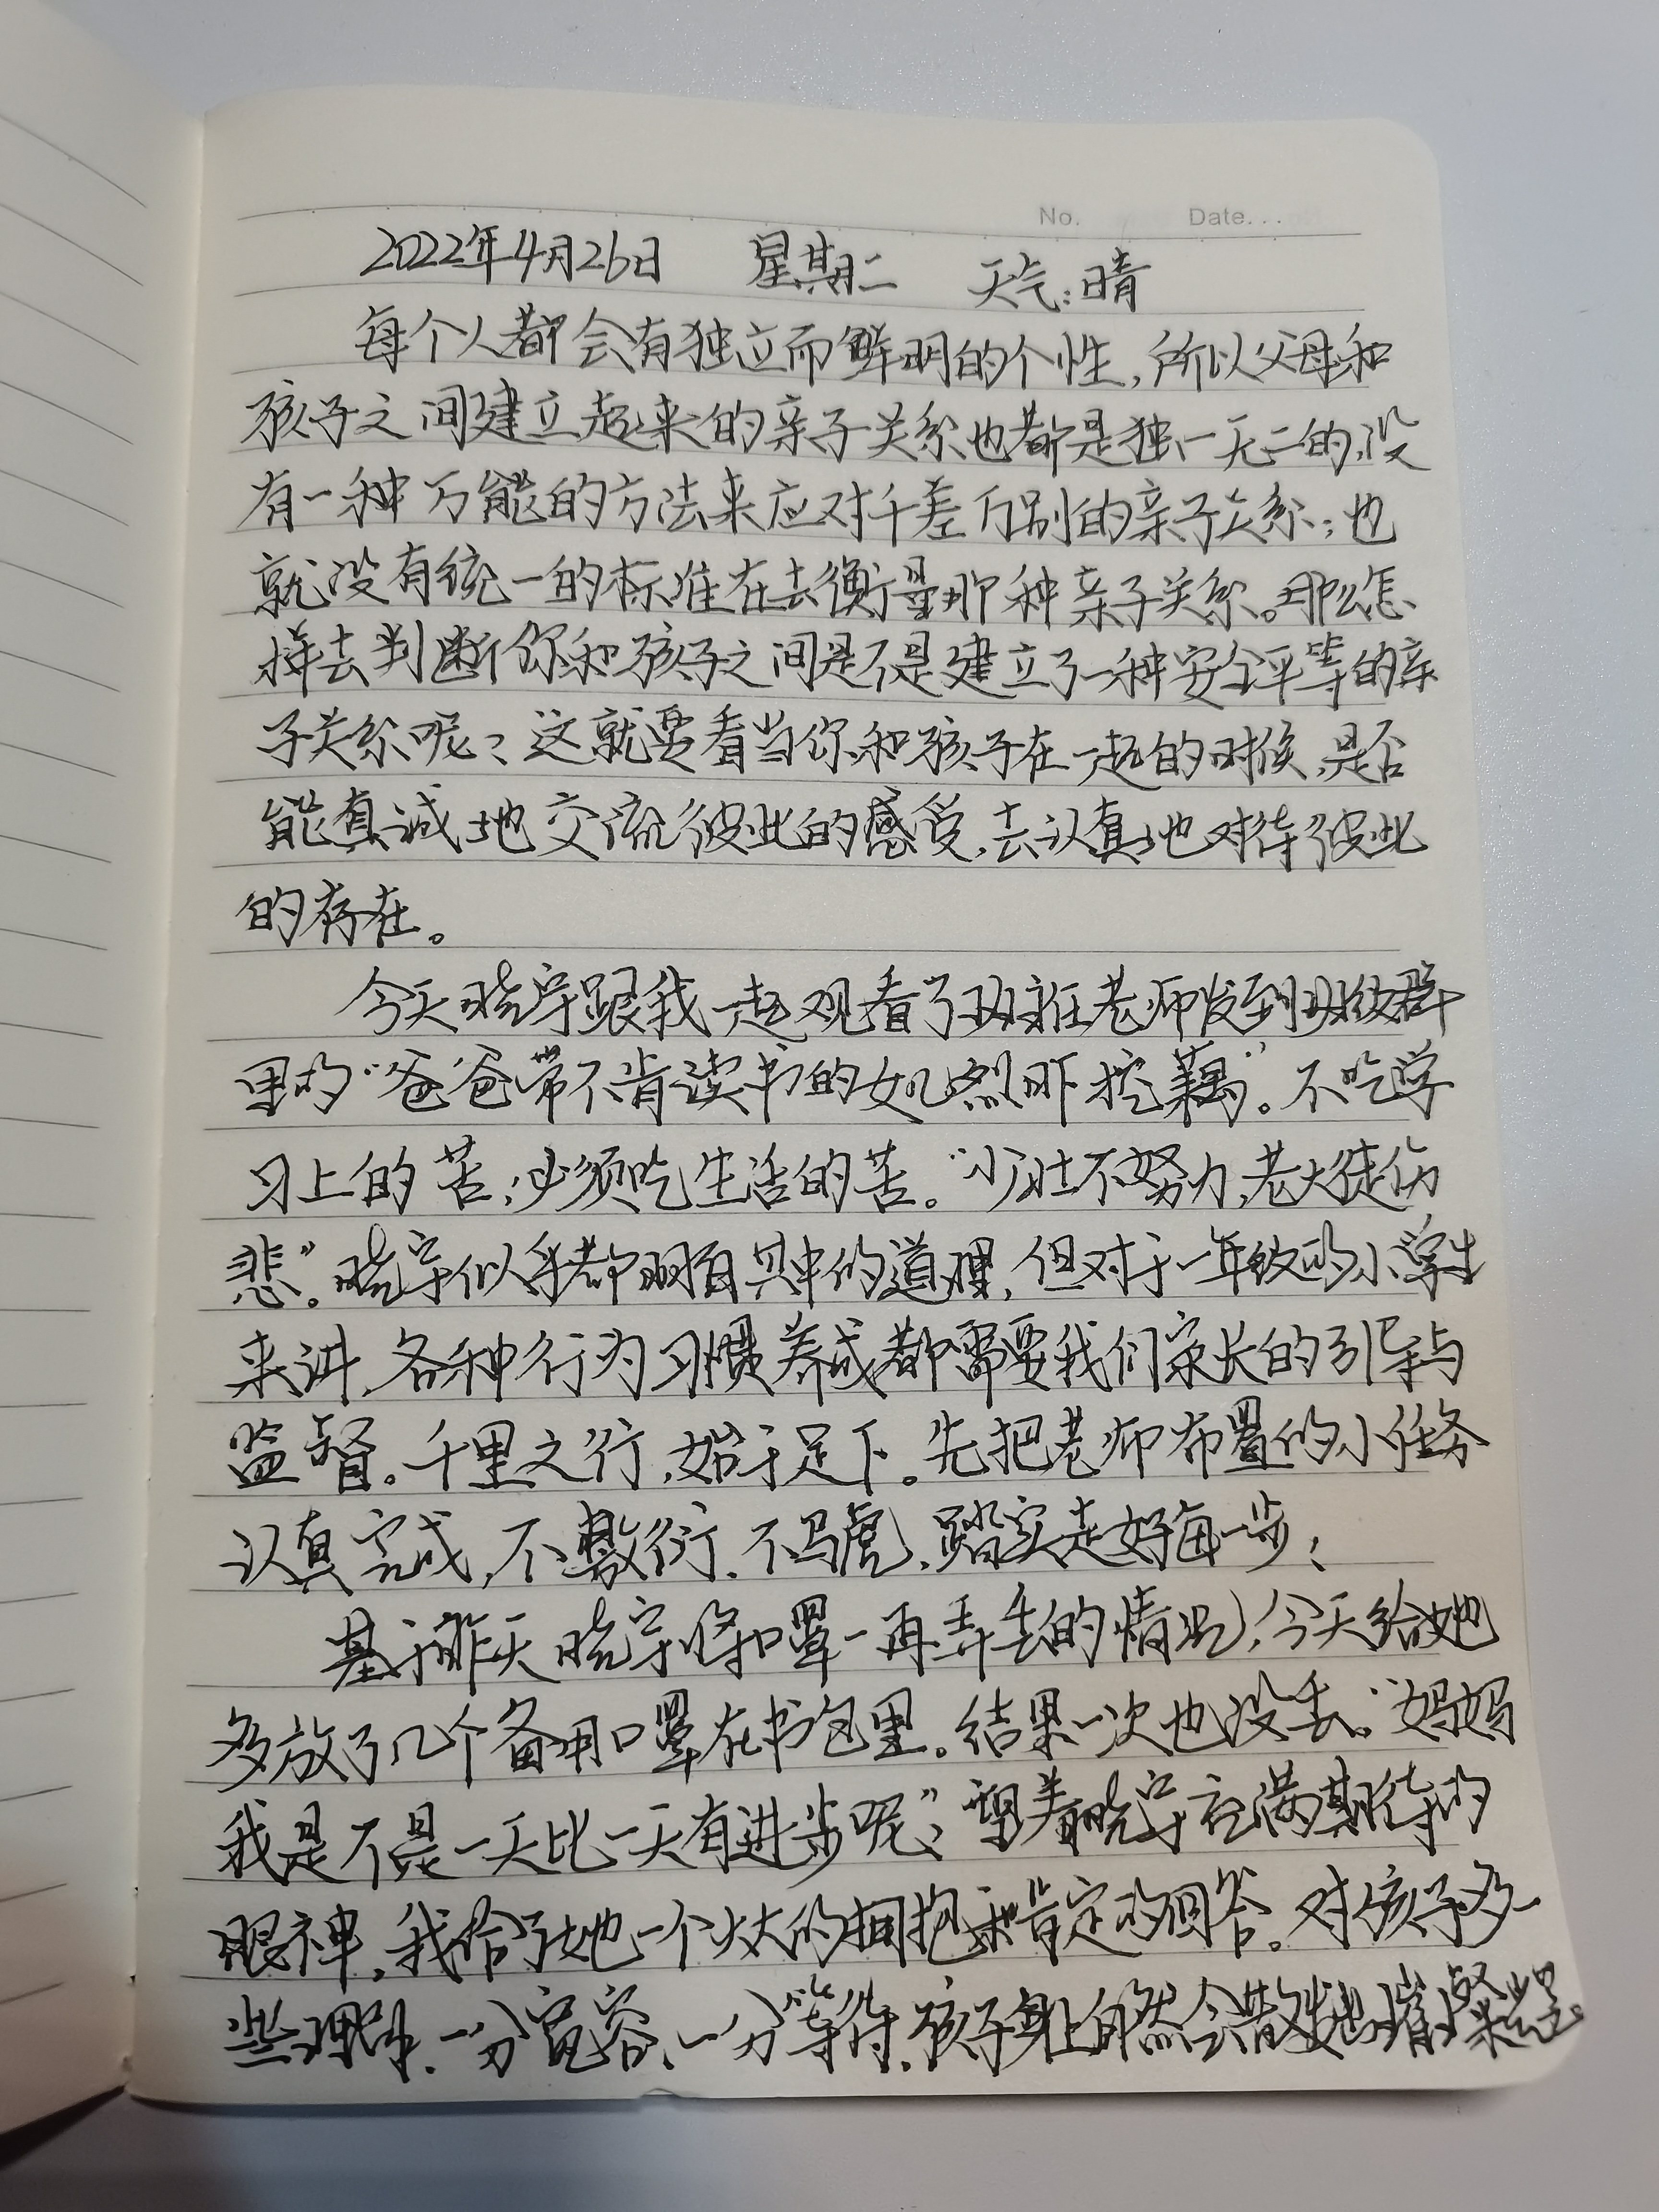 No. Date...
2022年4月26日 星期二 天气:晴
每个人都会有独立而鲜明的个性,所以父母和
孩子之间建立起来的亲子关系也都是独一无二的,没
有一种万能的方法来应对千差万别的亲子关系;也
就没有统一的标准在去衡量那种亲子关系。那么怎
样去判断你和孩子之间是不是建立了一种安全平等的亲
子关系呢?这就要看当你和孩子在一起的时候,是否
能真诚地交流彼此的感受,去认真地对待彼此
的存在。
今天晓宇跟我一起观看了班主任老师发到班级群
里的“爸爸带不肯读书的女儿烈日下挖藕”。不吃学
习上的苦;必须吃生活的苦。“少壮不努力,老大徒伤
悲”。晓宇似乎都明白其中的道理,但对于一年级的小学生
来讲,各种行为习惯养成都需要我们家长的引导与
监督。千里之行,始于足下。先把老师布置的小任务
认真完成,不敷衍.不马虎,踏实走好每一步;
基于昨天晓宇将口罩一再弄丢的情况,今天给她
多放了几个备用口罩在书包里。结果一次也没丢。“妈妈
我是不是一天比一天有进步呢?”望着晓宇充满期待的
眼神,我给了她一个大大的拥抱和肯定的回答。对孩子多一
些理解、一分宽容、一分等待,孩子身上自然会散发出璀璨